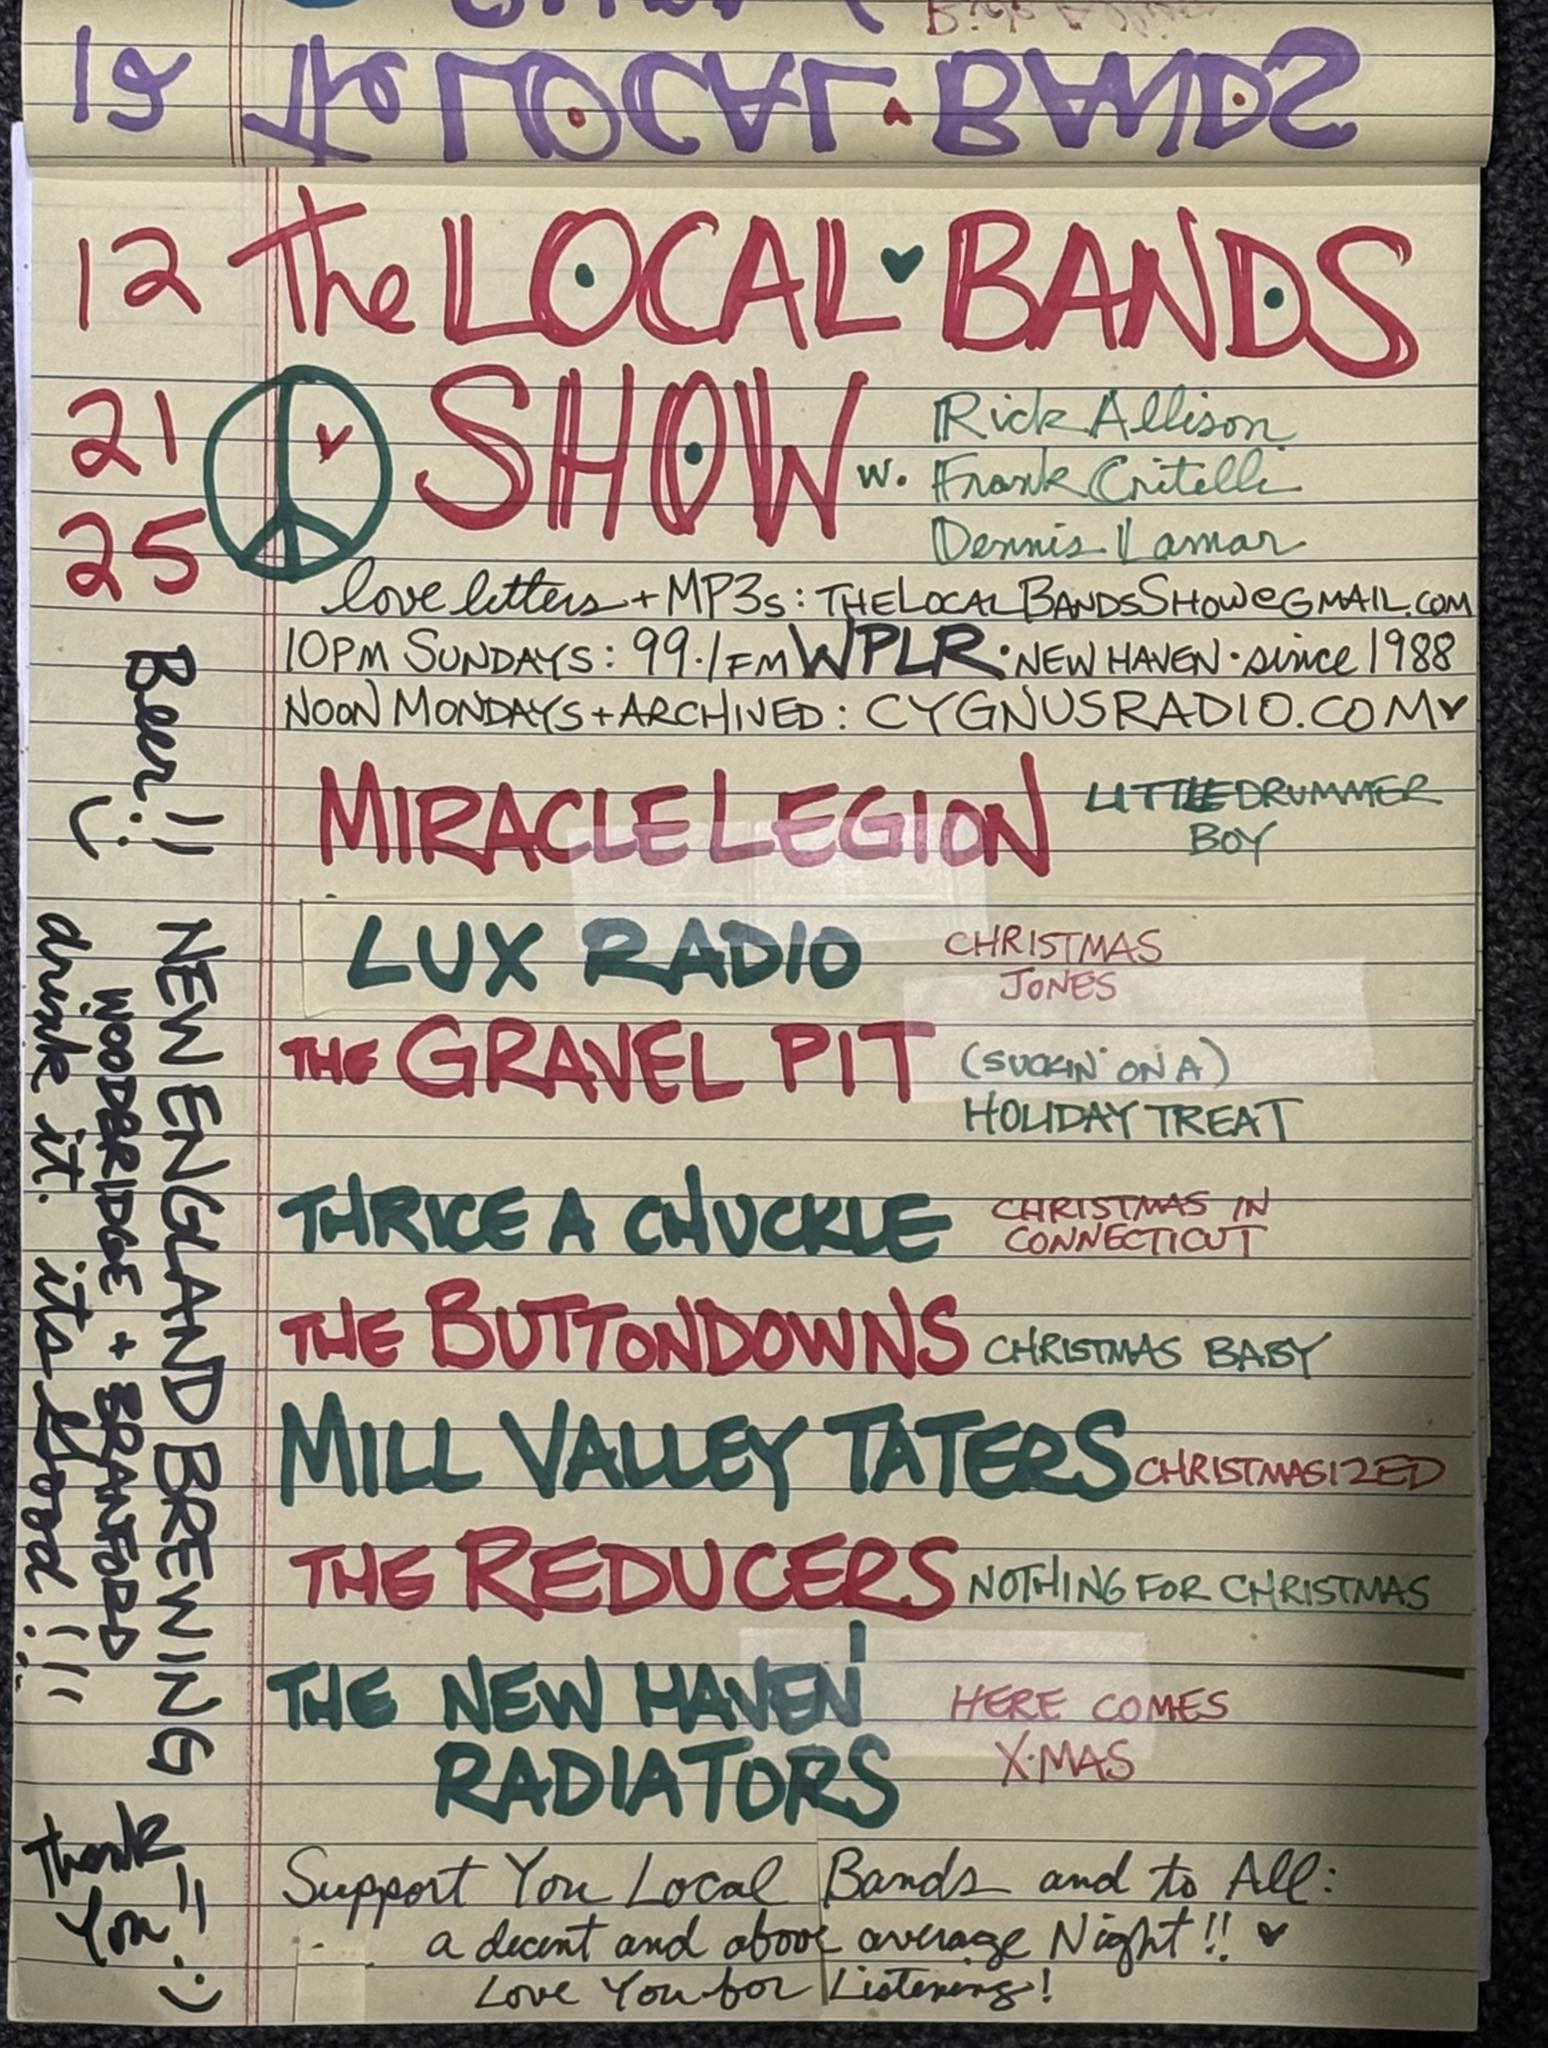 19 The LOCAL BANDS
12 The LOCAL BANDS
21 SHOW w. Rick Allison
Frank Critelli
25 Dennis Lamar
love letters + MP3s: THELOCALBANDSSHOW@GMAIL.COM
10PM SUNDAYS: 99.1 FM WPLR · NEW HAVEN · since 1988
NOON MONDAYS + ARCHIVED: CYGNUSRADIO.COM
MIRACLE LEGION LITTLE DRUMMER
BOY
LUX RADIO CHRISTMAS
JONES
THE GRAVEL PIT (SUCKIN' ON A)
HOLIDAY TREAT
THRICE A CHUCKLE CHRISTMAS IN
CONNECTICUT
THE BUTTONDOWNS CHRISTMAS BABY
MILL VALLEY TATERS CHRISTMASIZED
THE REDUCERS NOTHING FOR CHRISTMAS
THE NEW HAVEN HERE COMES
RADIATORS X·MAS
Support You Local Bands and to All:
a decent and above average Night!!
Love You for Listening!
Beer!! :)
NEW ENGLAND BREWING
WOODBRIDGE + BRANFORD
drink it. its Good!!!
Thank
You!! :)